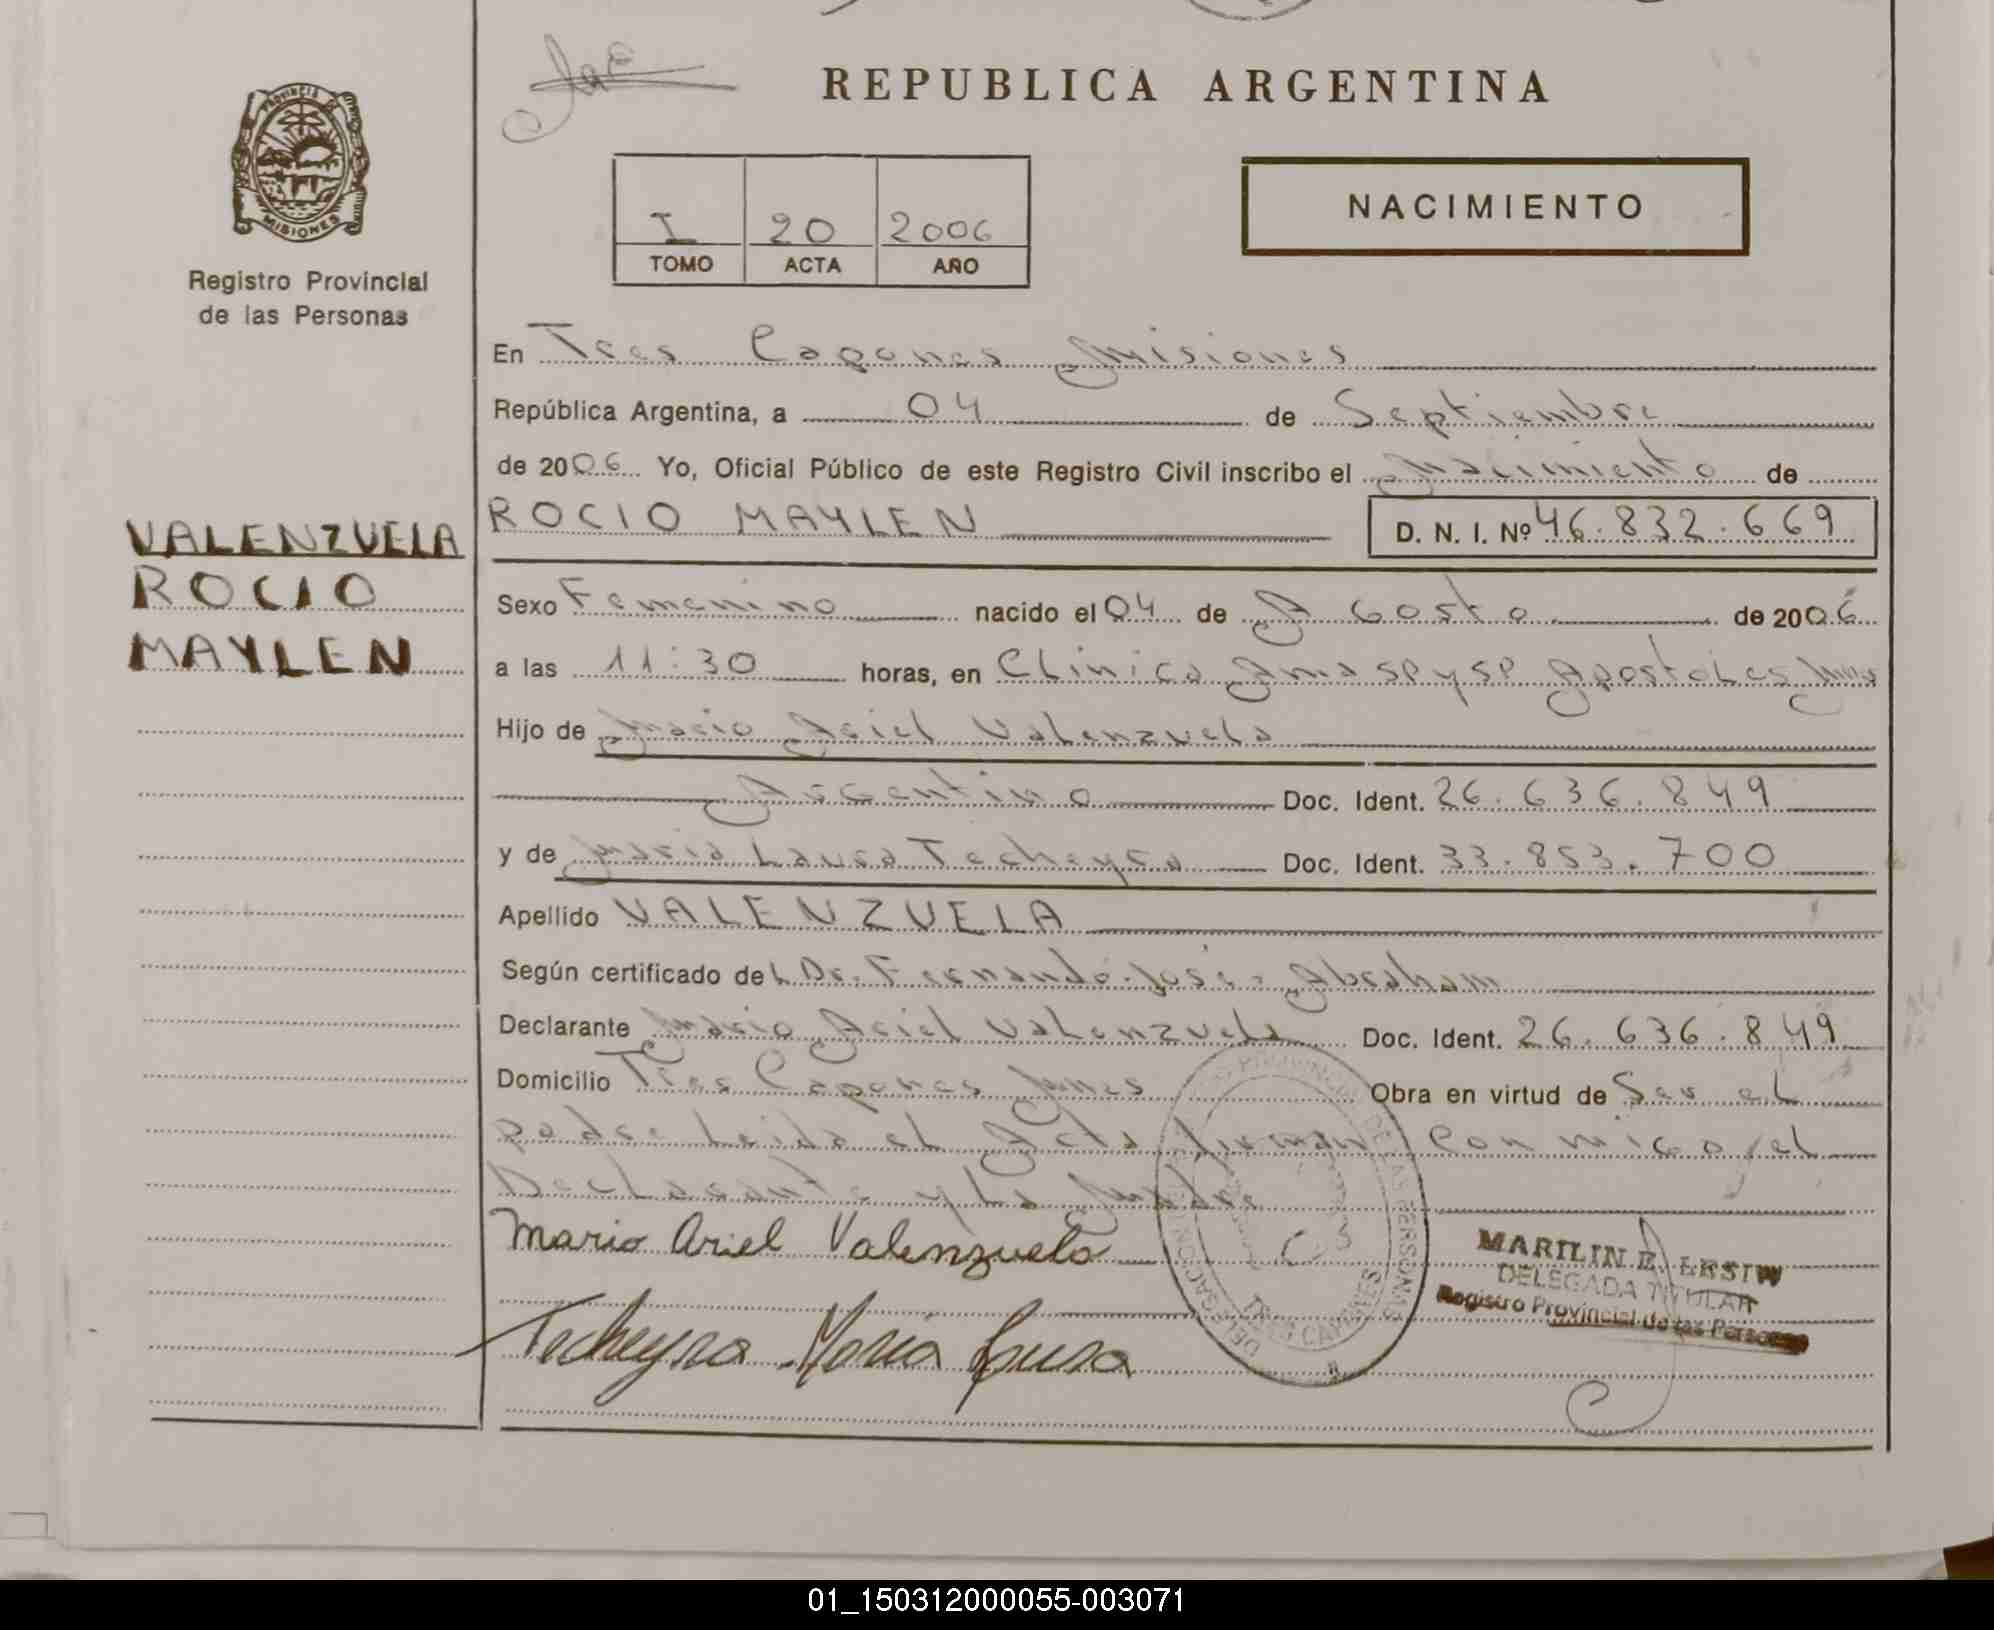 REPUBLICA ARGENTINA
PROVINCIA DE
MISIONES
Registro Provincial
de las Personas
I 20 2006
TOMO ACTA AÑO
NACIMIENTO
En Tres Capones Misiones
República Argentina, a 04 de Septiembre
de 2006 Yo, Oficial Público de este Registro Civil inscribo el Nacimiento de
ROCIO MAYLEN D. N. I. Nº 46.832.669
VALENZUELA
ROCIO
MAYLEN
Sexo Femenino nacido el 04 de Agosto de 2006
a las 11:30 horas, en Clinica Apostoles Mnes
Hijo de Mario Ariel Valenzuela
Argentino Doc. Ident. 26.636.849
y de Maria Laura Techeyra Doc. Ident. 33.853.700
Apellido VALENZUELA
Según certificado del Dr. Fernando José Abraham
Declarante Mario Ariel Valenzuela Doc. Ident. 26.636.849
Domicilio Tres Capones Mnes Obra en virtud de Ser el
padre Leida el Acta firman Conmigo, el
Declarante y La Madre
Mario Ariel Valenzuela
Techeyra María
MARILIN E.
DELEGADA TITULAR
Registro Provincial de las Personas
TRES CAPONES
01_150312000055-003071